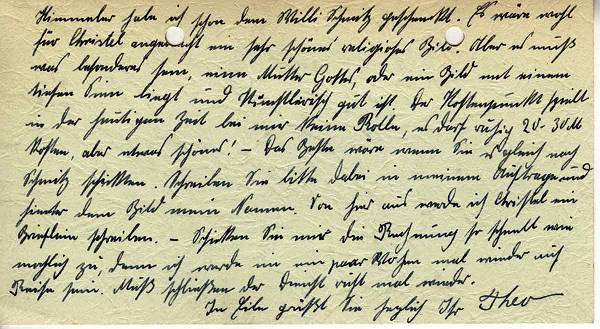 Himmler habe ich schon dem Willi Schmitz geschenkt. Es wäre wohl
für Christel angebracht ein sehr schönes religiöses Bild. Aber es muß
was besonderes sein, eine Mutter Gottes, oder ein Bild mit einem
tiefen Sinn liegt und Künstlärisch gut ist. Der Kostenpunkt spielt
in der heutigen Zeit bei mir keine Rolle, es darf ruhig 20-30 M
kosten, aber etwas schönes! – Das Beste wäre wenn Sie es gleich nach
Schmitz schickten. Schreiben Sie bitte dabei in meinem Auftrage und
hinter dem Bild mein Namen. Von hier aus werde ich Christel ein
Brieflein schreiben. – Schicken Sie mir die Rechnung so schnell wie
möglich zu, denn ich werde in ein paar Wochen mal wieder auf
Reise sein. Muß schließen der Dienst ruft mal wieder.
In Eile grüßt Sie herzlich Ihr Theo